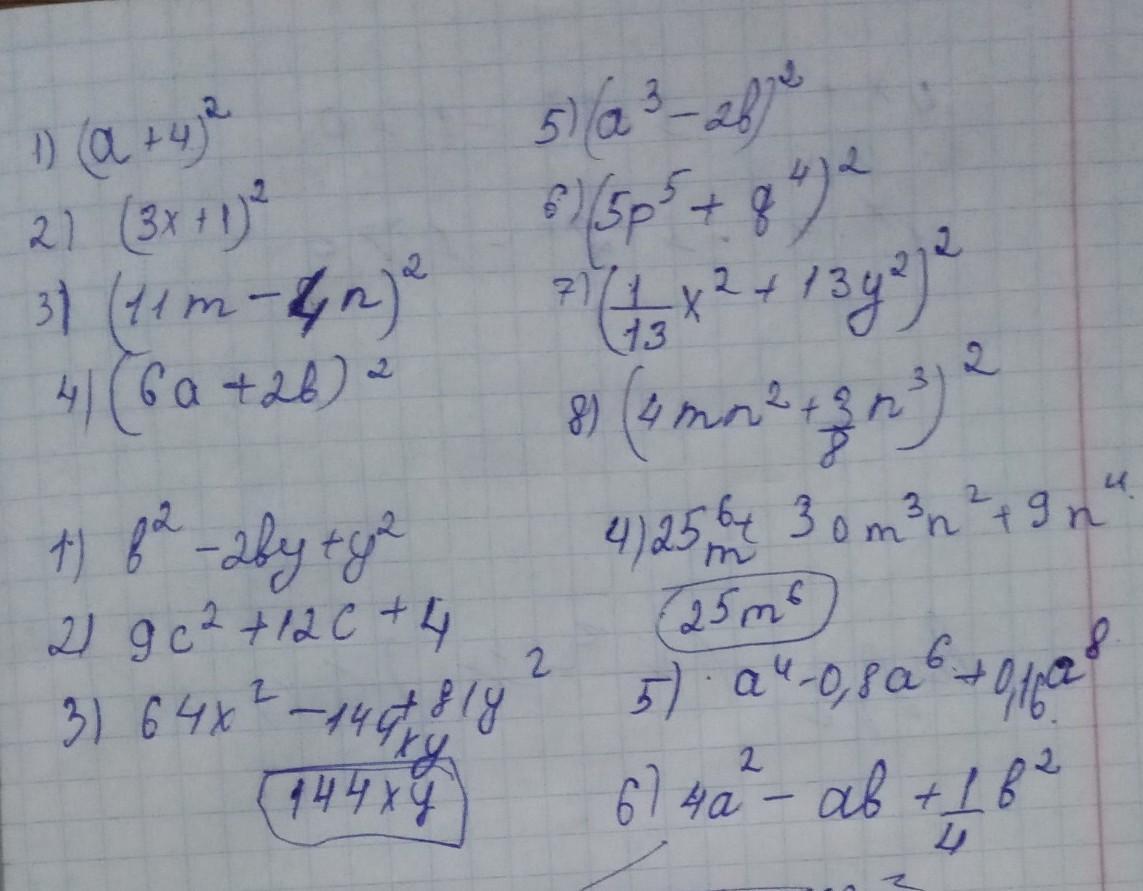 1) (a + 4)²
2) (3x + 1)²
3) (11m − 4n)²
4) (6a + 2b)²
5) (a³ − 2b)²
6) (5p⁵ + q⁴)²
7) (1/13 x² + 13y²)²
8) (4mn² + 3/8 n³)²
1) b² − 2by + y²
2) 9c² + 12c + 4
3) 64x² − 144xy + 81y²
144xy
4) 25m⁶ + 30m³n² + 9n⁴
25m⁶
5) a⁴ − 0,8a⁶ + 0,16a⁸
6) 4a² − ab + 1/4 b²